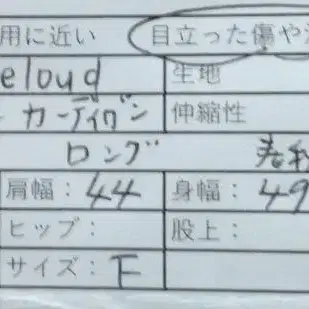 用に近い 目立った傷や
eloud 生地
カーディガン 伸縮性
ロング 春秋
肩幅：44 身幅：49
ヒップ： 股上：
サイズ：F